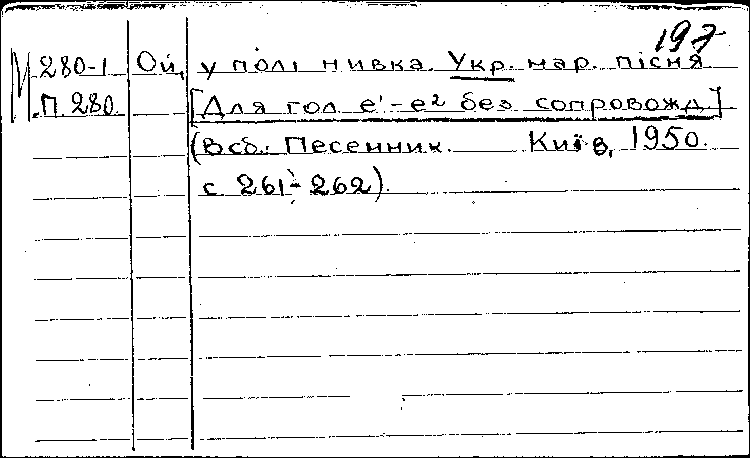 197
М 280-1 Ой, у полі нивка. Укр. нар. пісня
П. 280 [Для гол е¹-е² без сопровожд.]
(В сб.: Песенник. Київ, 1950.
с 261-262).